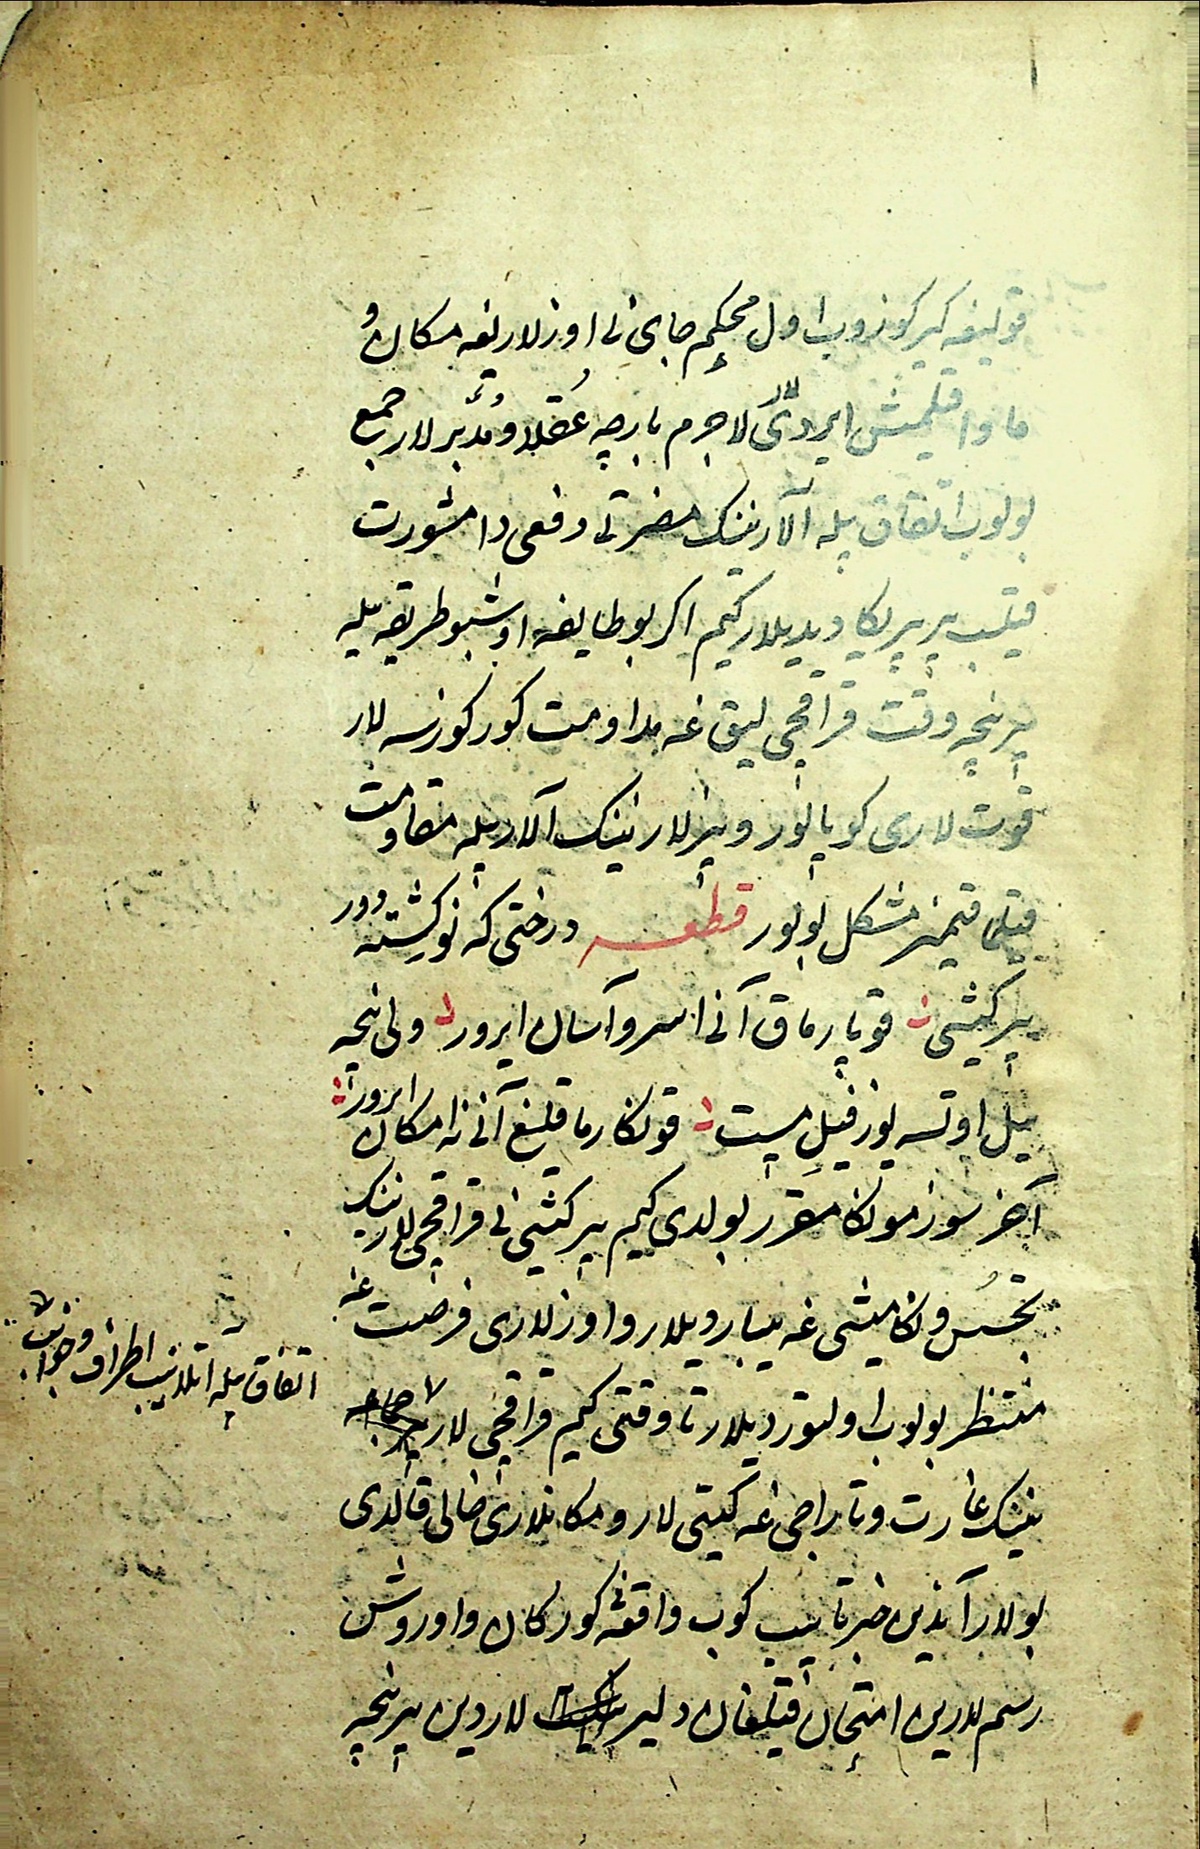 قولیغه کیرکوزوب اول محکم جای نی اوزلاریغه مکان و
ماوا قیلمیش ایردی لار لاجرم بارچه عقلا و مدبر لار جمع
بولوب اتفاق بیله آلارنینک مضرتی دفعی دا مشورت
قیلیب بیر بیریکا دیدیلار کیم اکر بو طایفه اوشبو طریقه بیله
بیر نیچه وقت قراقچی لیق غه مداومت کورکوزسه لار
قوت لاری کوپالور و بیزلار نینک آلار بیله مقاومت
قیلماقیمیز مشکل بولور قطعه درختی که نو کیشته دور
بیر کیشی قوپارماق آنی اسرو آسان ایرور ولی نیچه
ییل اوتسه یوز فیل مست قونکارماقلیغ آنی نه امکان ایرور
آخر سوز مونکا مقرر بولدی کیم بیر کیشی نی قراقچی لارنینک
تجسس و نکامیشی غه ییباردیلار و اوزلاری فرصت غه
منتظر بولوب اولتوردیلار تا وقتی کیم قراقچی لار بیر جماعه
نینک غارت و تاراجی غه کیتی لار و مکانلاری خالی قالدی
بولار آندین خبر تاپیب کوب واقعه کورکان و اوروش
رسم لارین امتحان قیلغان دلیر لاردین بیر نیچه
اتفاق بیله اتلانیب اطراف و جوانب